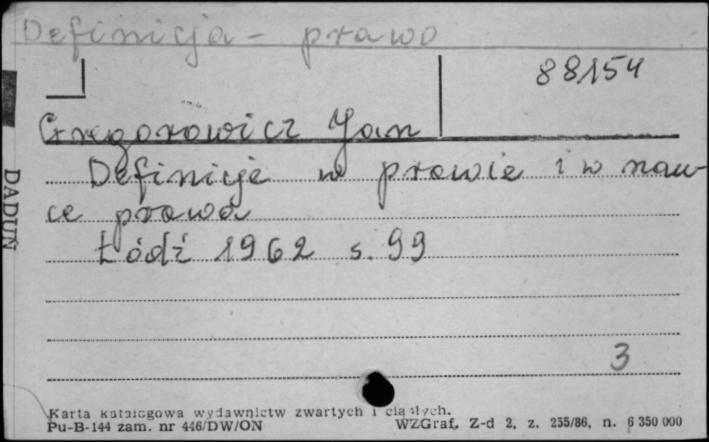 Definicja - prawo
88154
Gregorowicz Jan
Definicje w prawie i w nau-
ce prawa
Łódź 1962 s. 99
3
DADUŃ
Karta katalogowa wydawnictw zwartych i ciągłych.
Pu-B-144 zam. nr 446/DW/ON
WZGraf. Z-d 2, z. 255/86, n. 6 350 000